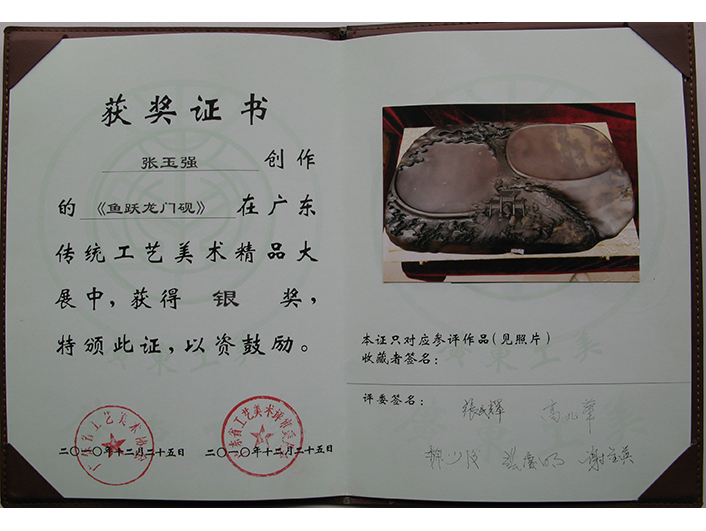 获奖证书
张玉强 创作
的《鱼跃龙门砚》在广东
传统工艺美术精品大
展中，获得 银 奖，
特颁此证，以资鼓励。
广东省工艺美术协会
二〇一〇年十二月二十五日
二〇一〇年十二月二十五日
本证只对应参评作品（见照片）
收藏者签名：
评委签名：